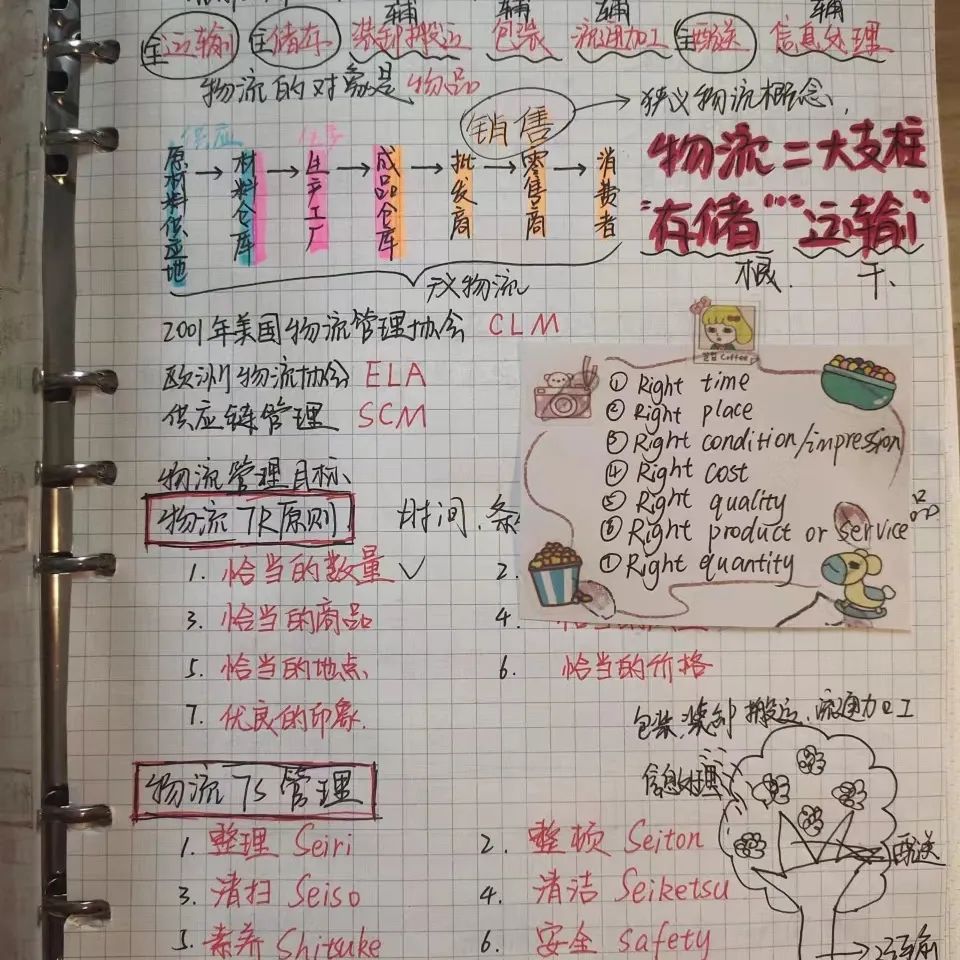 辅 辅 辅 辅
主运输 主储存 装卸搬运 包装 流通加工 主配送 信息处理
物流的对象是物品
销售 → 狭义物流概念
供应
原材料供应地 → 材料仓库 → 生产工厂 → 成品仓库 → 批发商 → 零售商 → 消费者
物流二大支柱
"存储" "运输"
根 干
物流
2001年美国物流管理协会 CLM
欧洲物流协会 ELA
供应链管理 SCM
物流管理目标
物流7R原则 时间、条
1. 恰当的数量 ✓ 2.
3. 恰当的商品 4.
5. 恰当的地点 6. 恰当的价格
7. 优良的印象
① Right time
② Right place
③ Right condition/impression
④ Right cost
⑤ Right quality
⑥ Right product or service
① Right quantity
品
包装、装卸搬运、流通加工
信息处理
配送
运输
物流7S管理
1. 整理 Seiri 2. 整顿 Seiton
3. 清扫 Seiso 4. 清洁 Seiketsu
5. 素养 Shitsuke 6. 安全 safety